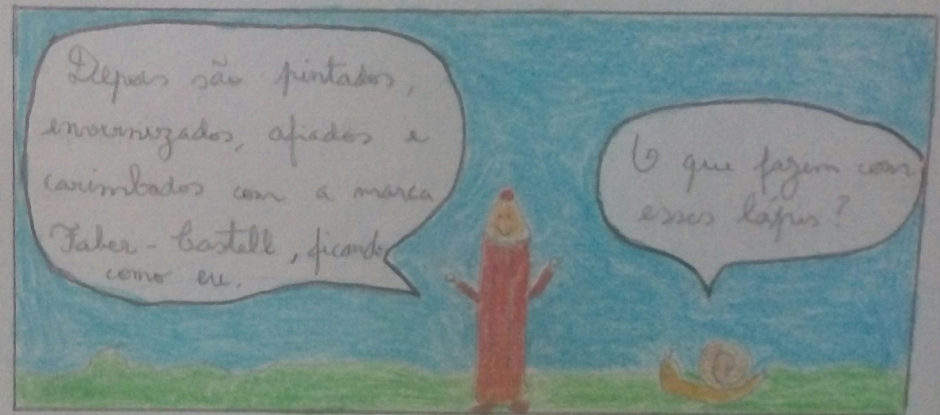 Depois são pintados,
envernizados, afiados e
carimbados com a marca
Faber-Castell, ficando
como eu.
O que fazem com
esses lápis?